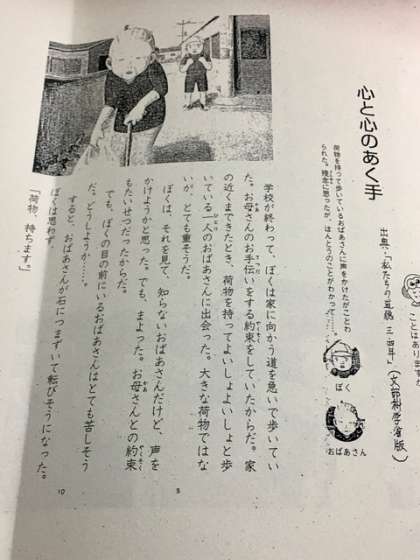 ことはあります
心と心のあく手
出典:「私たちの道徳 三・四年」(文部科学省版)
荷物を持って歩いているおばあさんに声をかけたがことわ
られた。残念に思ったが、ほんとうのことがわかって……。
ぼく
おばあさん
学校が終わって、ぼくは家に向かう道を急いで歩いてい
た。お母さんのお手伝いをする約束をしていたからだ。家
の近くまできたとき、荷物を持ってよいしょよいしょと歩
いている一人のおばあさんに出会った。大きな荷物ではな
いが、とても重そうだ。
ぼくは、それを見て、知らないおばあさんだけど、声を
かけようかと思った。でも、まよった。お母さんとの約束
もたいせつだったからだ。
でも、ぼくの目の前にいるおばあさんはとても苦しそう
だ。どうしようか……。
すると、おばあさんが石につまずいて転びそうになった。
ぼくは思わず、
「荷物、持ちます。」
9
10